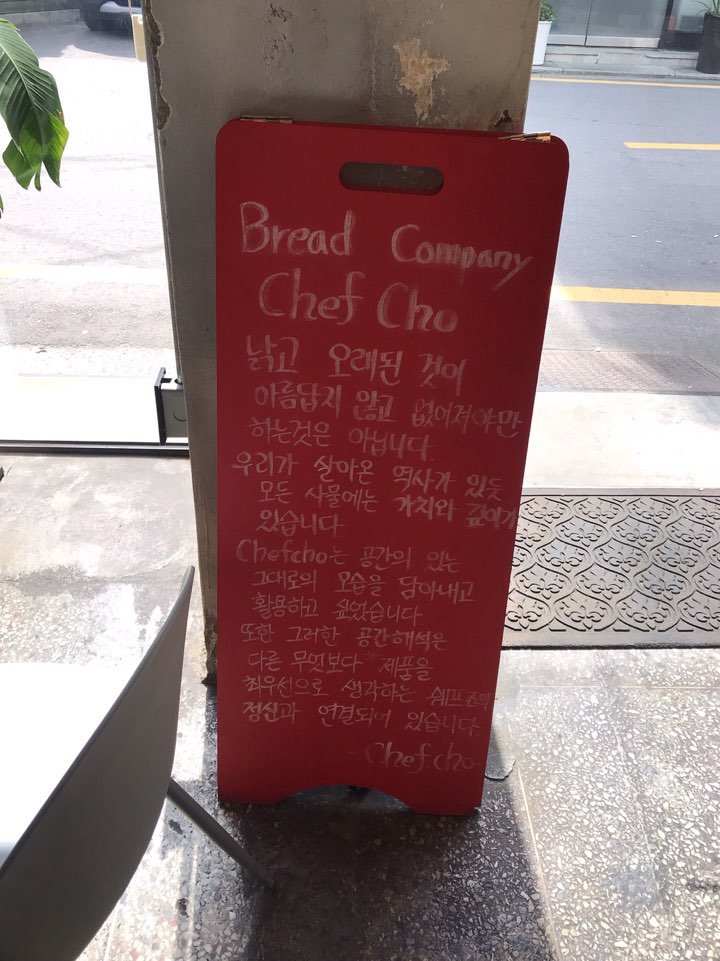 Bread Company
Chef Cho
낡고 오래된 것이
아름답지 않고 없어져야만
하는것은 아닙니다
우리가 살아온 역사가 있듯
모든 사물에는 가치와 깊이가
있습니다
Chefcho는 공간의 있는
그대로의 모습을 담아내고
활용하고 싶었습니다
또한 그러한 공간해석은
다른 무엇보다 제품을
최우선으로 생각하는 쉐프조의
정신과 연결되어 있습니다
- Chefcho-